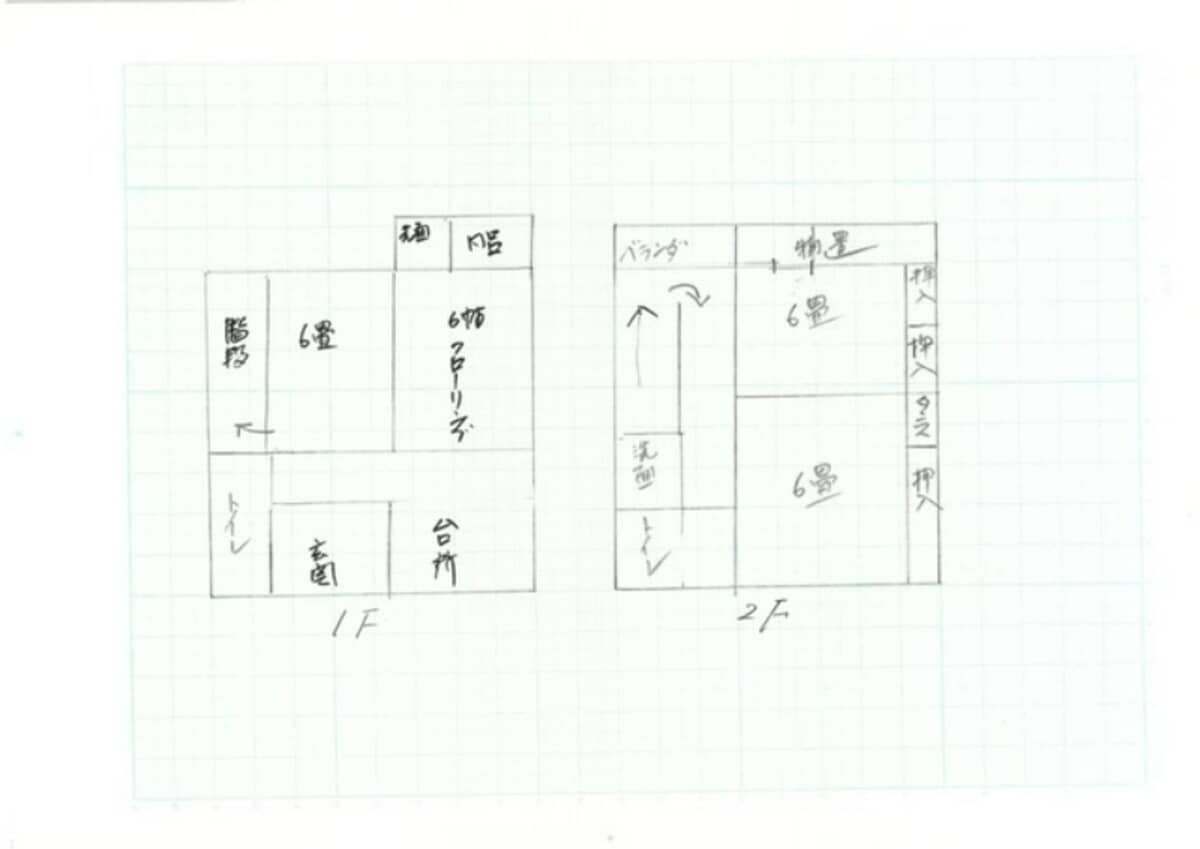 洗面
風呂
階段
6畳
6帖
フローリング
トイレ
玄関
台所
1F
バランダ
物置
6畳
押入
押入
タンス
洗面
6畳
押入
トイレ
2F